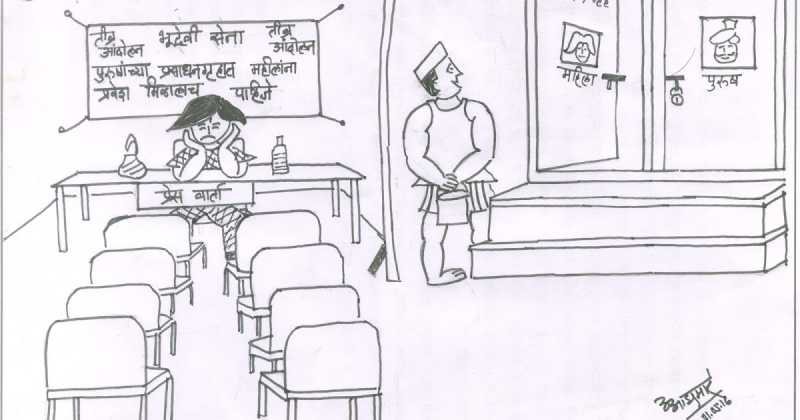 तीव्र आंदोलन भूदेवी सेना तीव्र आंदोलन
पुरुषांच्या प्रसाधनगृहात महीलांना
प्रवेश मिळालाच पाहिजे
प्रेस वार्ता
महिला
पुरुष